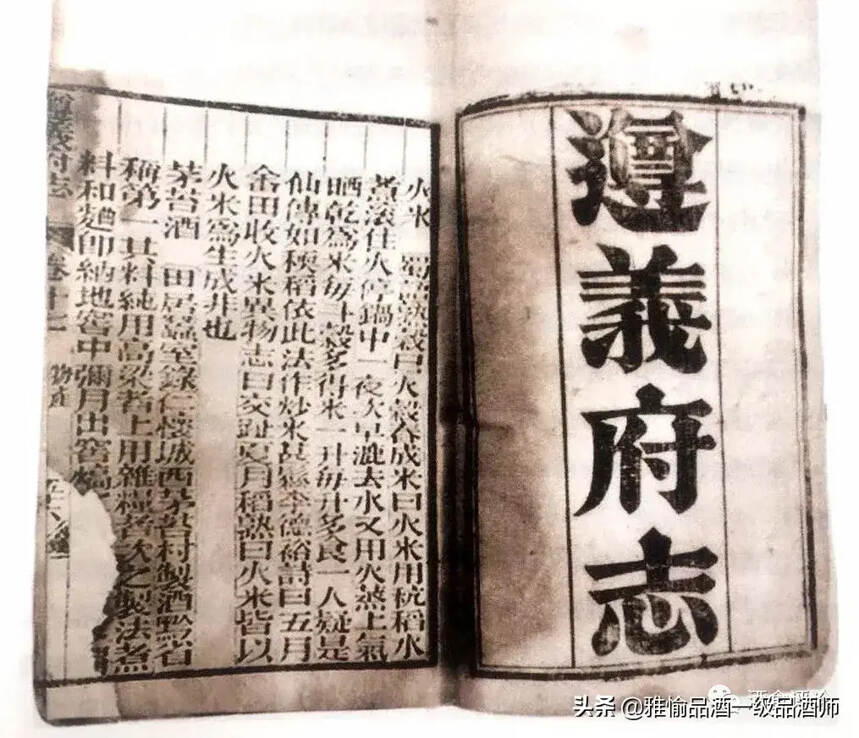 遵義府志
火米 蜀語熟穀曰火穀舂成米曰火米用秔稻水
煮滾住火停鍋中一夜次早漉去水又用火蒸上氣
晒乾爲米每斗穀多得米一升每升多食一人疑是
仙傳如稉稻依此法作炒米 李德裕詩曰五月
畬田收火米異物志曰交趾夏月稻熟曰火米皆以
火米爲生成非也
茅苔酒 田居蠶室錄仁懷城西茅苔村製酒黔省
稱第一其料純用高粱者上用雜糧者次之製法煮
料和麴即納地窖中彌月出窖熇
遵義府志 卷十七 物產
头条 @雅愉品酒一级品酒师